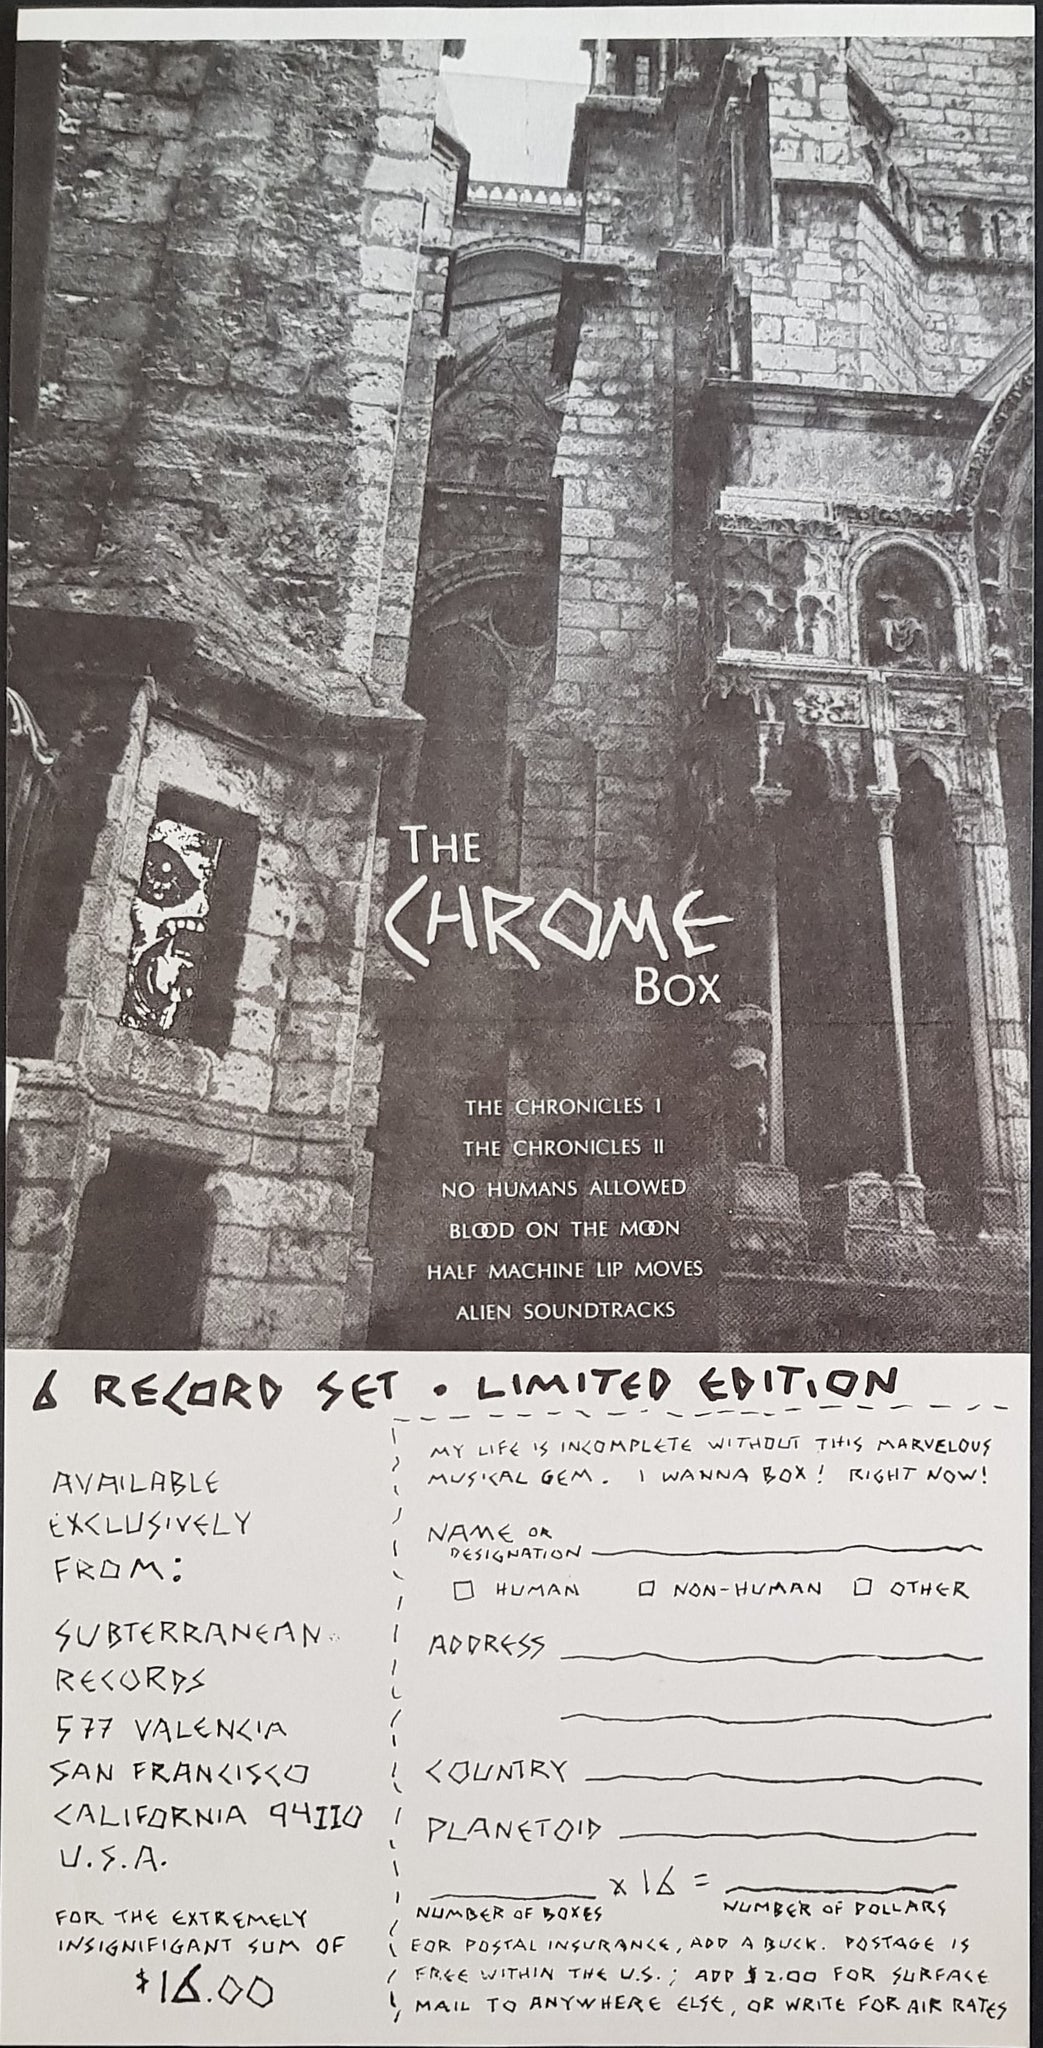 THE
CHROME
BOX
THE CHRONICLES I
THE CHRONICLES II
NO HUMANS ALLOWED
BLOOD ON THE MOON
HALF MACHINE LIP MOVES
ALIEN SOUNDTRACKS
6 RECORD SET • LIMITED EDITION
AVAILABLE
EXCLUSIVELY
FROM:
SUBTERRANEAN
RECORDS
577 VALENCIA
SAN FRANCISCO
CALIFORNIA 94110
U.S.A.
FOR THE EXTREMELY
INSIGNIFIGANT SUM OF
$16.00
MY LIFE IS INCOMPLETE WITHOUT THIS MARVELOUS
MUSICAL GEM. I WANNA BOX! RIGHT NOW!
NAME OR
DESIGNATION
HUMAN NON-HUMAN OTHER
ADDRESS
COUNTRY
PLANETOID
x 16 =
NUMBER OF BOXES NUMBER OF DOLLARS
FOR POSTAL INSURANCE, ADD A BUCK. POSTAGE IS
FREE WITHIN THE U.S.; ADD $2.00 FOR SURFACE
MAIL TO ANYWHERE ELSE, OR WRITE FOR AIR RATES